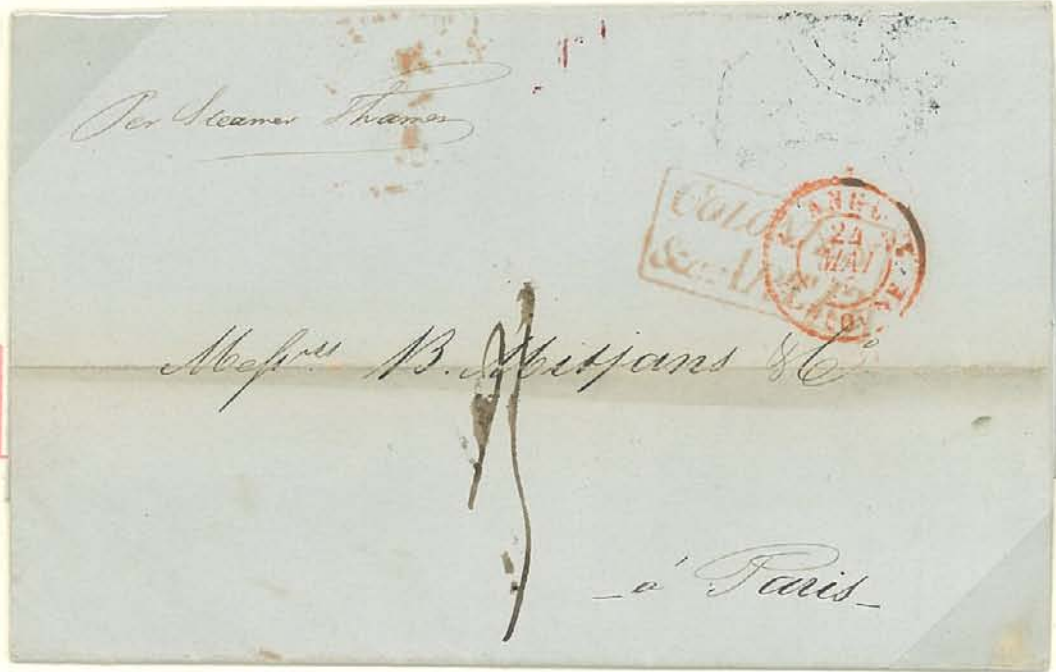 Per Steamer Thames
COLONIES
&c. ART.
ANGL.
24
MAI
Messrs B. Mitjans & Co
_ à Paris _